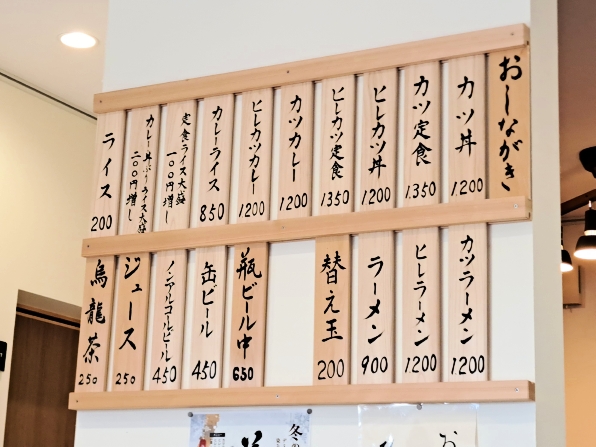 おしながき
カツ丼 1200
カツ定食 1350
ヒレカツ丼 1200
ヒレカツ定食 1350
カツカレー 1200
ヒレカツカレー 1200
カレーライス 850
定食ライス大盛
一〇〇円増し
カレー丼ぶ
ライス大盛
二〇〇円増し
ライス 200
カツラーメン 1200
ヒレラーメン 1200
ラーメン 900
替え玉 200
瓶ビール中 650
缶ビール 450
ノンアルコールビール 450
ジュース 250
烏龍茶 250
冬の
お